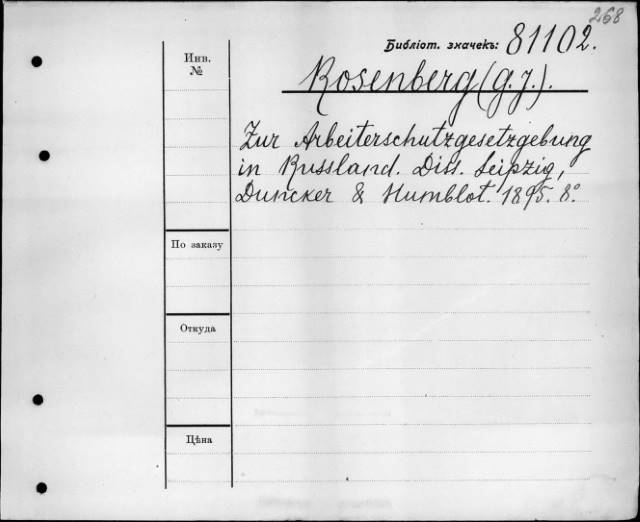 268
Библіот. значекъ: 81102.
Инв.
№
Rosenberg (G.J.).
Zur Arbeiterschutzgesetzgebung
in Russland. Diss. Leipzig,
Duncker & Humblot. 1895. 8°.
По заказу
Откуда
Цѣна